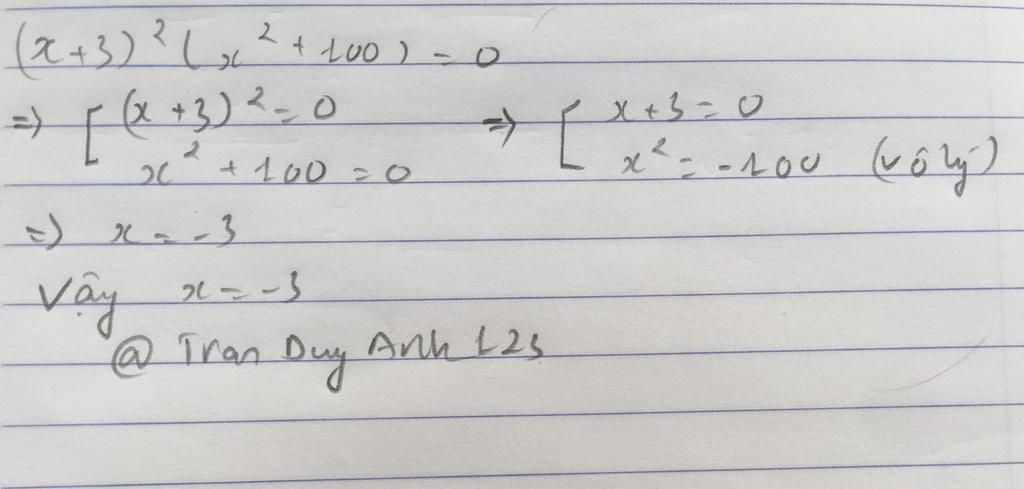 (x+3)² (x² + 100) = 0
=> [ (x+3)² = 0 => [ x+3 = 0
x² + 100 = 0 x² = -100 (vô lý)
=> x = -3
Vậy x = -3
@ Tran Duy Anh 123